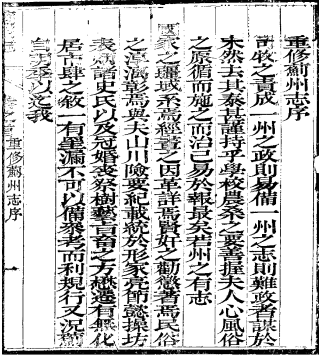 重修薊州志序
司牧之責成一州之政則易備一州之志則難政者謀於
未然去其泰甚謹持乎學校農桑之要善握夫人心風俗
之原循而施之而治已易於報最矣若州之有志
國家之疆域系焉經費之因革詳焉賢奸之勸懲著焉民俗
之淳漓彰焉與夫山川險要紀載統於形家亮節懿操坊
表炳諸史氏以及冠婚喪祭樹藝畜之方懋遷有無化
居市肆之敘一有罣漏不可以備參考而利規行又況
自以迄我
重修薊州志序
一